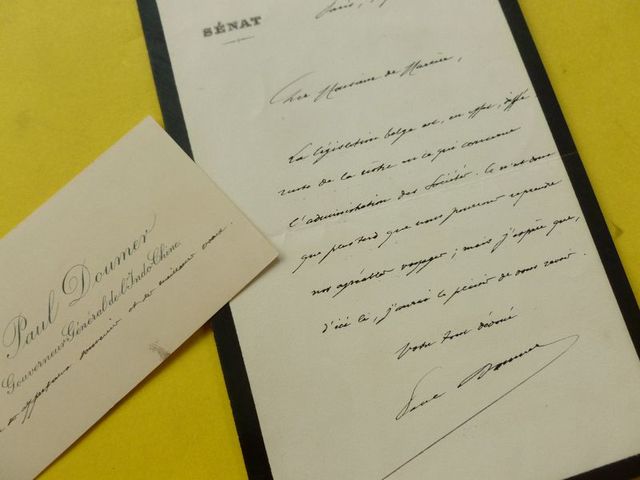 SÉNAT
Paris,
Cher Monsieur de
La législation belge est, en effet, diffé
rente de la nôtre en ce qui concerne
l'administration des Sociétés. Ce n'est donc
que plus tard que nous pourrons reprendre
nos agréables voyages ; mais j'espère que,
d'ici là, j'aurai le plaisir de vous revoir.
Votre tout dévoué
Paul Doumer
Paul Doumer
Gouverneur Général de l'Indo-Chine
affectueux souvenir et ses meilleurs vœux.